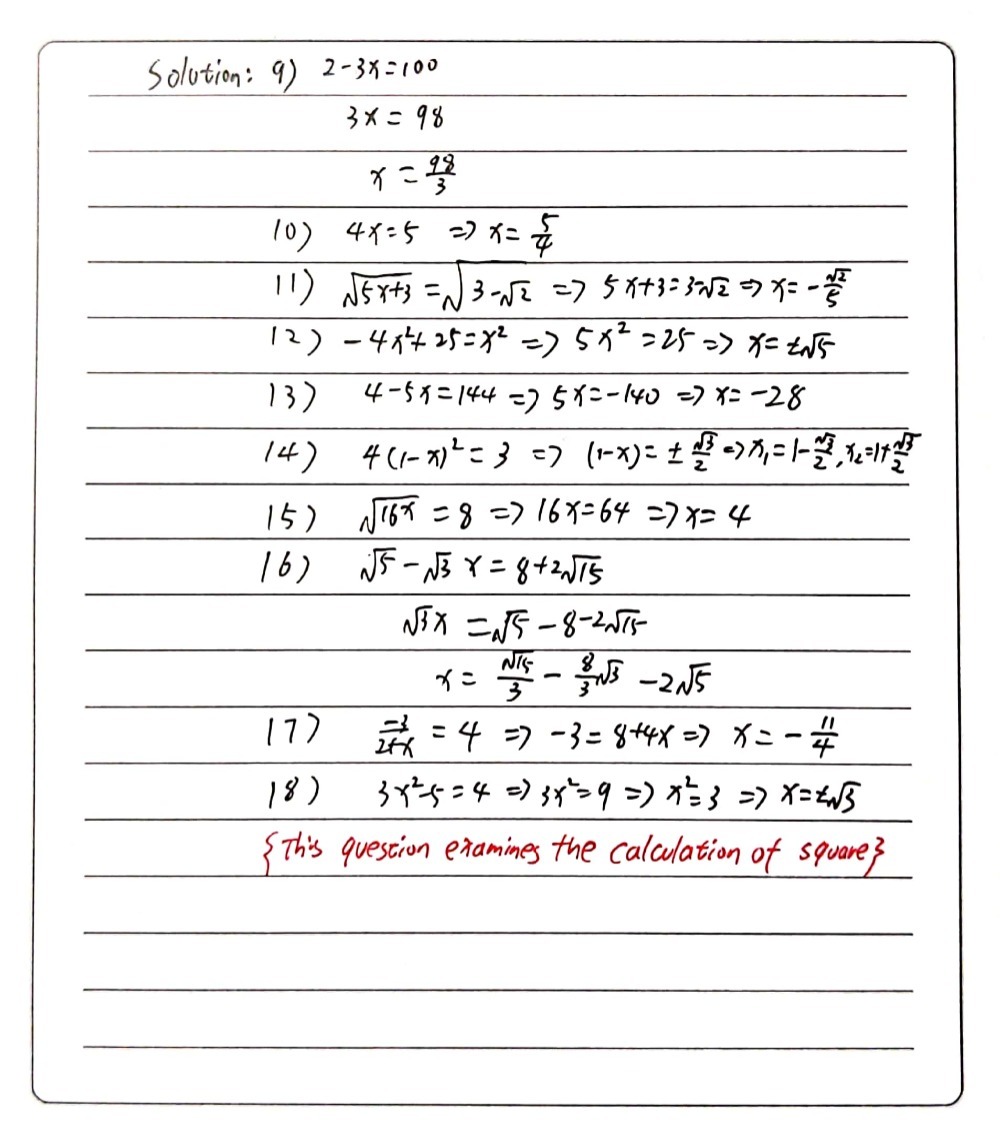 Solution: 9) 2-3x=100
3x=98
x=98/3
10) 4x=5 => x=5/4
11) √(5x+3)=√(3-√2) => 5x+3=3-√2 => x=-√2/5
12) -4x²+25=x² => 5x²=25 => x=±√5
13) 4-5x=144 => 5x=-140 => x=-28
14) 4(1-x)²=3 => (1-x)=±√3/2 => x₁=1-√3/2, x₂=1+√3/2
15) √(16x)=8 => 16x=64 => x=4
16) √5-√3 x=8+2√15
√3x=√5-8-2√15
x=√15/3-8/3√3-2√5
17) -3/(2+x)=4 => -3=8+4x => x=-11/4
18) 3x²-5=4 => 3x²=9 => x²=3 => x=±√3
{This question examines the calculation of square}